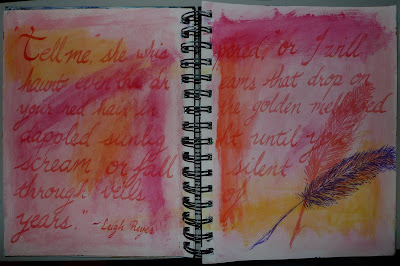 "Tell me," she whis pered, "or I will
haunt even the dr eams that drop on
your red hair in the golden mellowed
dappled sunlig ht, until you
scream or fall silent
through veils of
years." ~Leigh Reyes